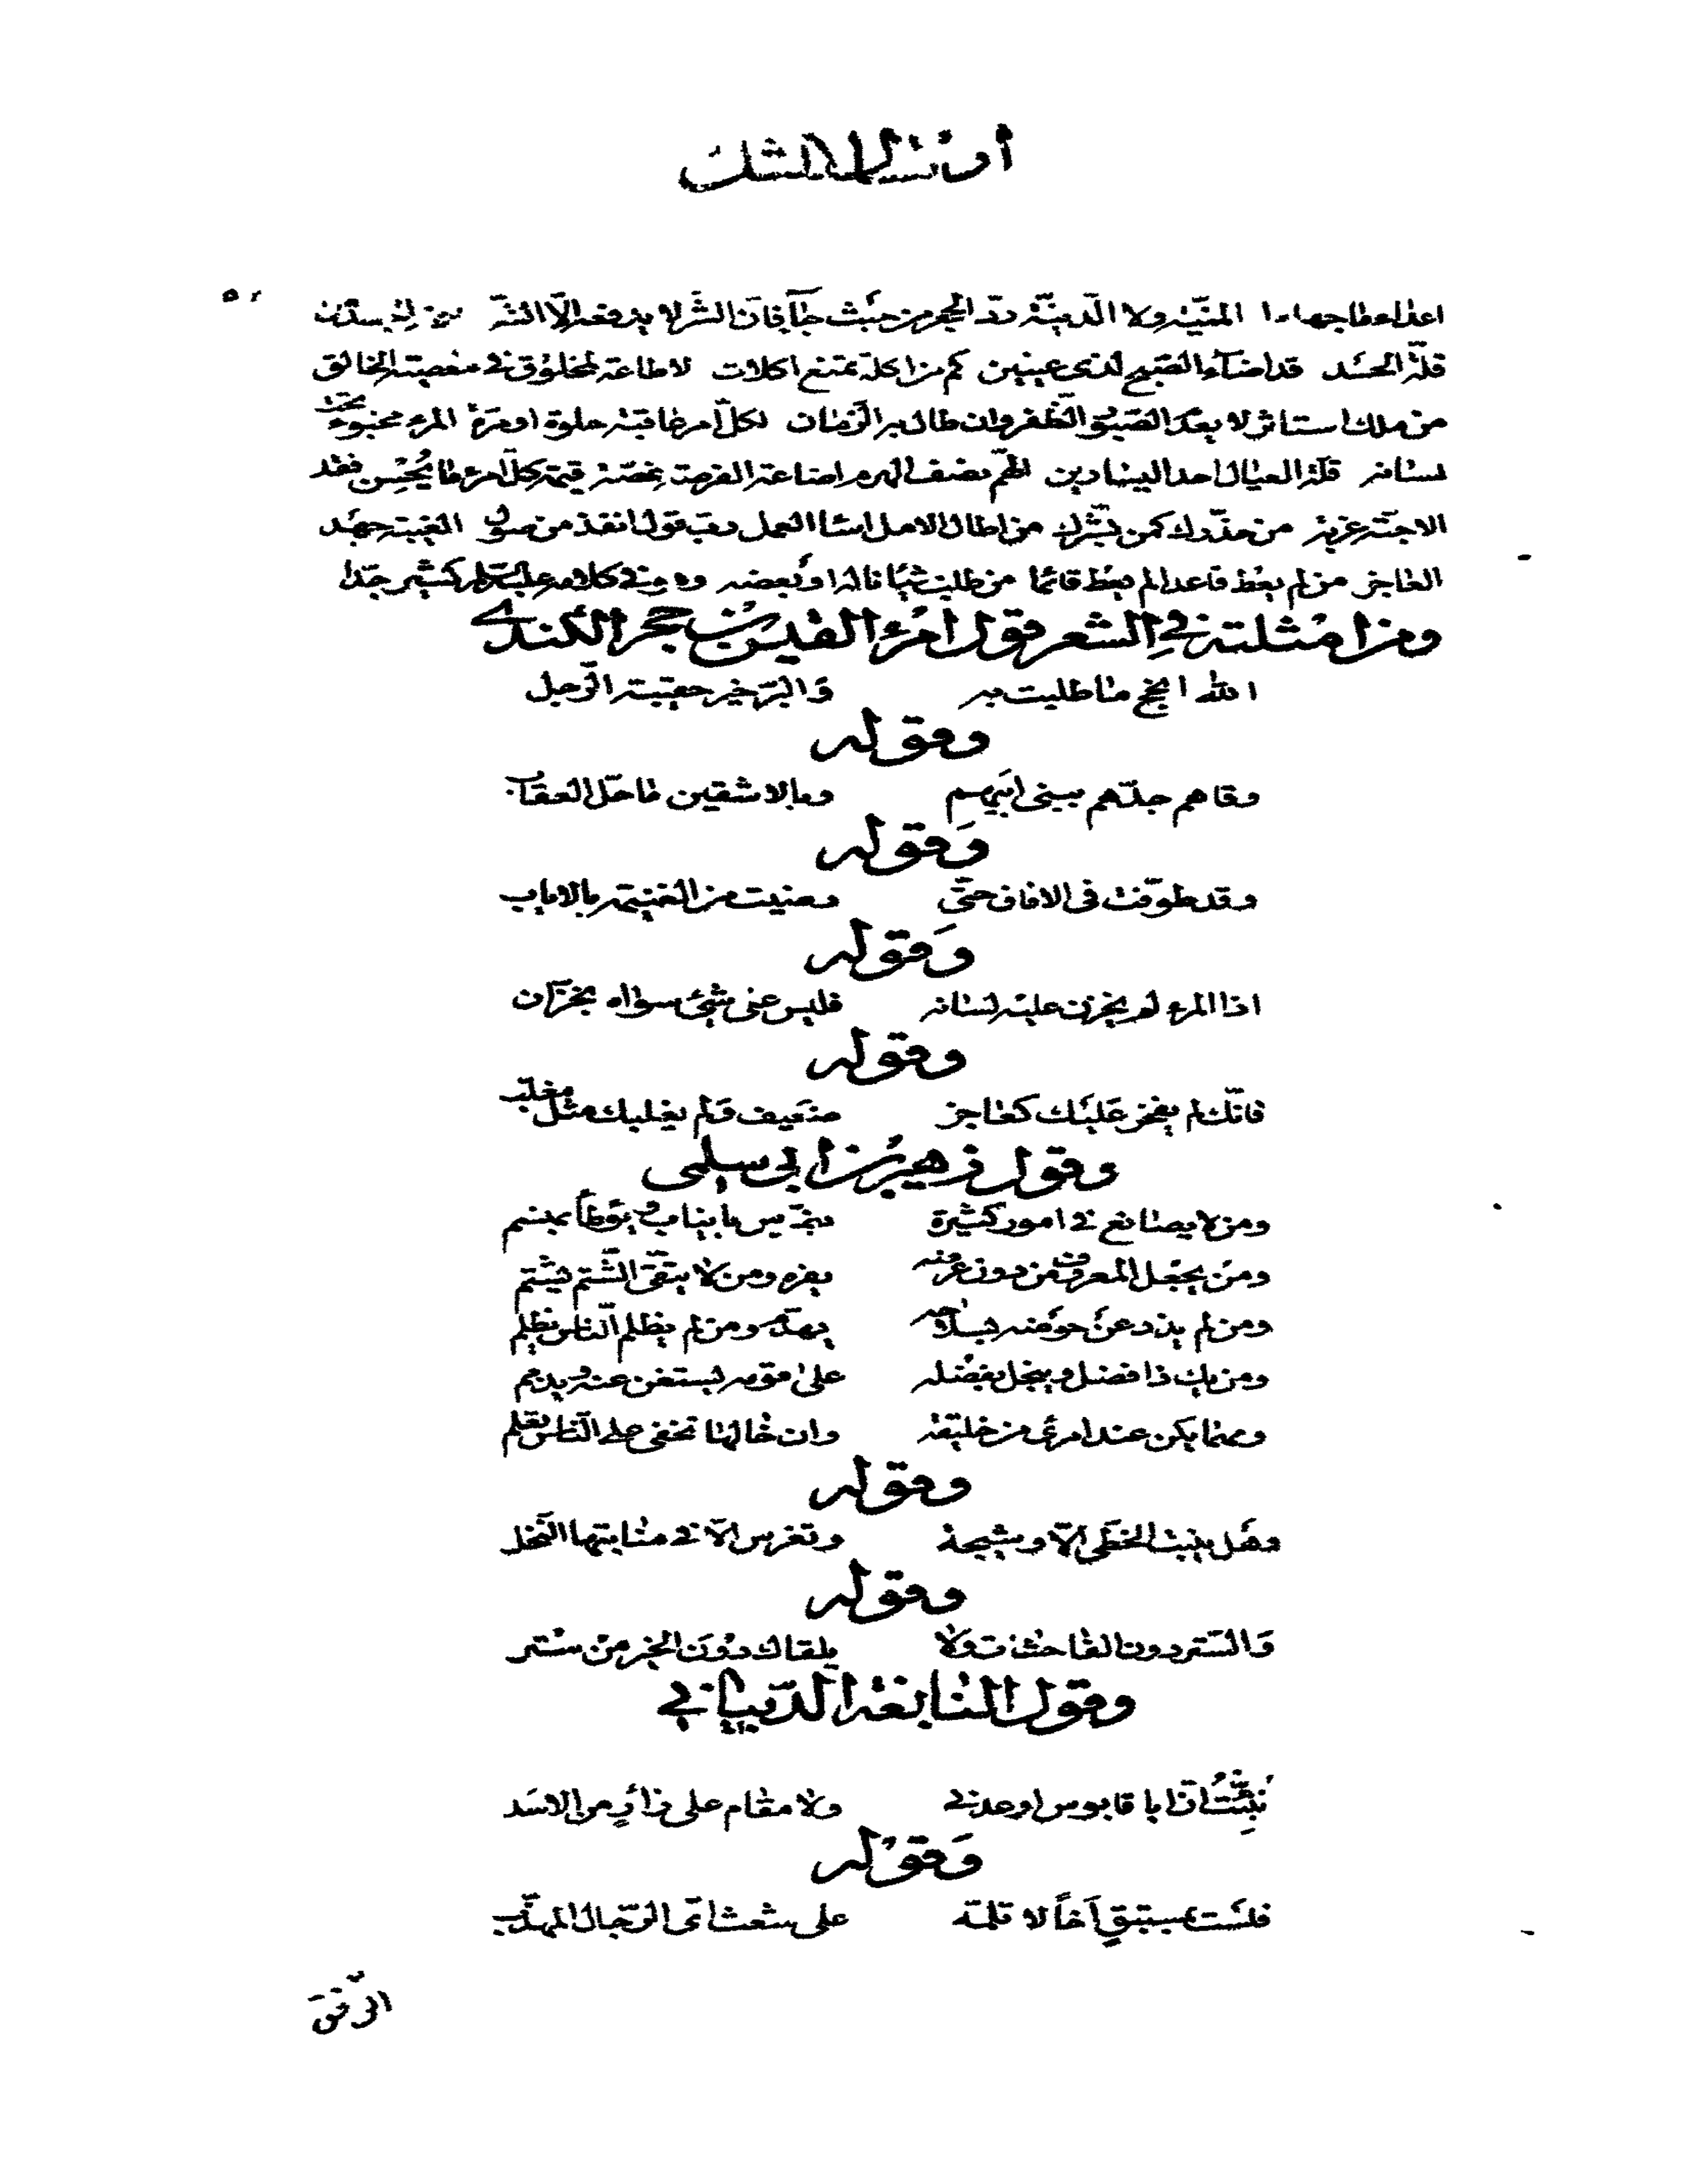 المنيّة ولا الدنيّة ردّ الحجر من حيث جآء فان الشّر لا يدفعه الّا الشّر
قلّة الحسَد قد اضآء الصّبح لذى عينين كم من اكلة تمنع اكلات لا طاعة لمخلوق في معصية الخالق
من ملك استاثر لا يعدم الصّبور الظّفر وان طال به الزّمان لكلّ امر عاقبة حلوة او مرّة المرء مخبوء تحت
لسانه قلّة العيال احد اليسارين الهمّ نصف الهرم اضاعة الفرصة غصّة قيمة كلّ امرء ما يُحْسِن فقد
الاحبّة غربة من حذّرك كمن بشّرك من اطال الامل اسآ العمل ربّ قول انفذ من صول الغيبة جهد
العاجز من لم يعْط قاعدا لم يعْط قائما من طلب شيئا ناله او بعضه وهو في كلامه عليه السّلام كثير جدّا
ومن امثلته في الشعر قول امرء القيس بن حجر الكندي
الله انجح ما طلبت به والبرّ خير حقيبة الرّحل
وقوله
وقاهم جدّهم ببنى ابيهم وبالاشقين ما حلّ العقاب
وَقوله
وقد طوّفت فى الافاق حتّى رضيت من الغنيمة بالاياب
وَقوله
اذا المرء لم يخزن عليه لسانه فليس على شئ سواه بخزّان
وقوله
فانّك لم يفخر عَليْك كعاجز ضعيف ولم يغلبك مثل مغلّب
وقول زهير بن ابي سلمى
ومن لا يصانع في امور كثيرة يضرّس بانياب ويُوْطأ بمنسم
ومَن يجْعل المعروف من دون عرضه يفره ومن لا يتّقى الشّتم يشتم
ومن لم يذد عنْ حوْضه بسلاحه يهدّم ومن لم يظلم النّاس يظلم
ومن يك ذا فضل ويبخل بفضله على قومه يستغن عنه ويذمم
ومهما يكن عند امرئ من خليقة وان خالها تخفى على النّاس تعلم
وقوله
وهَل ينبت الخطّى الّا وشيجة وتغرس الّا في منابتها النّخل
وقوله
وَالسّتر دون الفاحشات ولا يلقاك دُوْنَ الخير مِنْ ستر
وقول النابغة الذّبياني
نُبِّئْتُ انّ ابا قابوس اوعدني ولا مقام على زأرٍ من الاسَد
وَقوْله
فلسْت بمستبقٍ اَخاً لا تلمّه على شعث اىّ الرّجال المهذّب